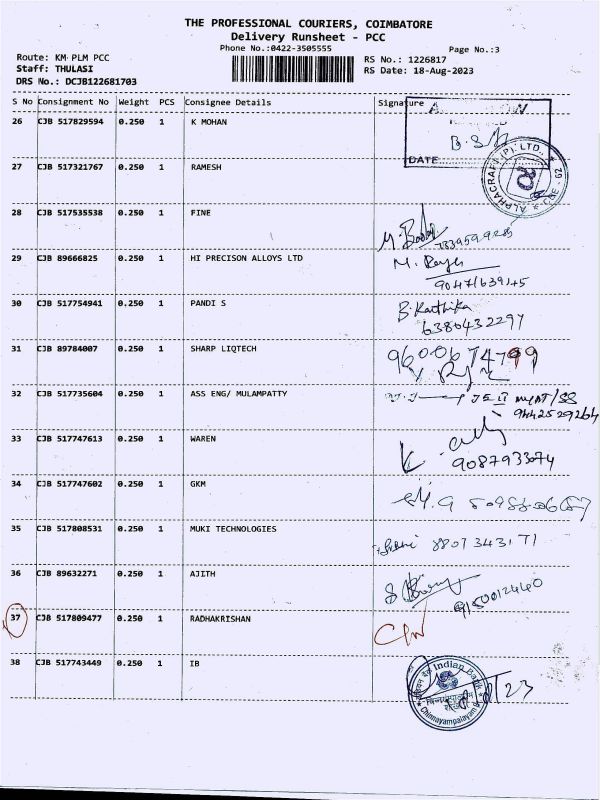 THE PROFESSIONAL COURIERS, COIMBATORE
Delivery Runsheet - PCC
Phone No.:0422-3505555
Page No.:3
Route: KM PLM PCC
RS No.: 1226817
Staff: THULASI
RS Date: 18-Aug-2023
DRS No.: DCJB122681703
S No Consignment No Weight PCS Consignee Details Signature
26 CJB 517829594 0.250 1 K MOHAN
DATE
ALPHACRAFT (P) LTD., * CBE - 62 *
27 CJB 517321767 0.250 1 RAMESH
28 CJB 517535538 0.250 1 FINE
29 CJB 89666825 0.250 1 HI PRECISON ALLOYS LTD
90471639145
30 CJB 517754941 0.250 1 PANDI S B. Karthika
6380432297
31 CJB 89784007 0.250 1 SHARP LIQTECH 9600674799
32 CJB 517735604 0.250 1 ASS ENG/ MULAMPATTY
9442529264
33 CJB 517747613 0.250 1 WAREN
9087933074
34 CJB 517747602 0.250 1 GKM
35 CJB 517808531 0.250 1 MUKI TECHNOLOGIES 8807343171
36 CJB 89632271 0.250 1 AJITH
9150012440
37 CJB 517809477 0.250 1 RADHAKRISHAN
38 CJB 517743449 0.250 1 IB
Indian Bank
Chinnayampalayam